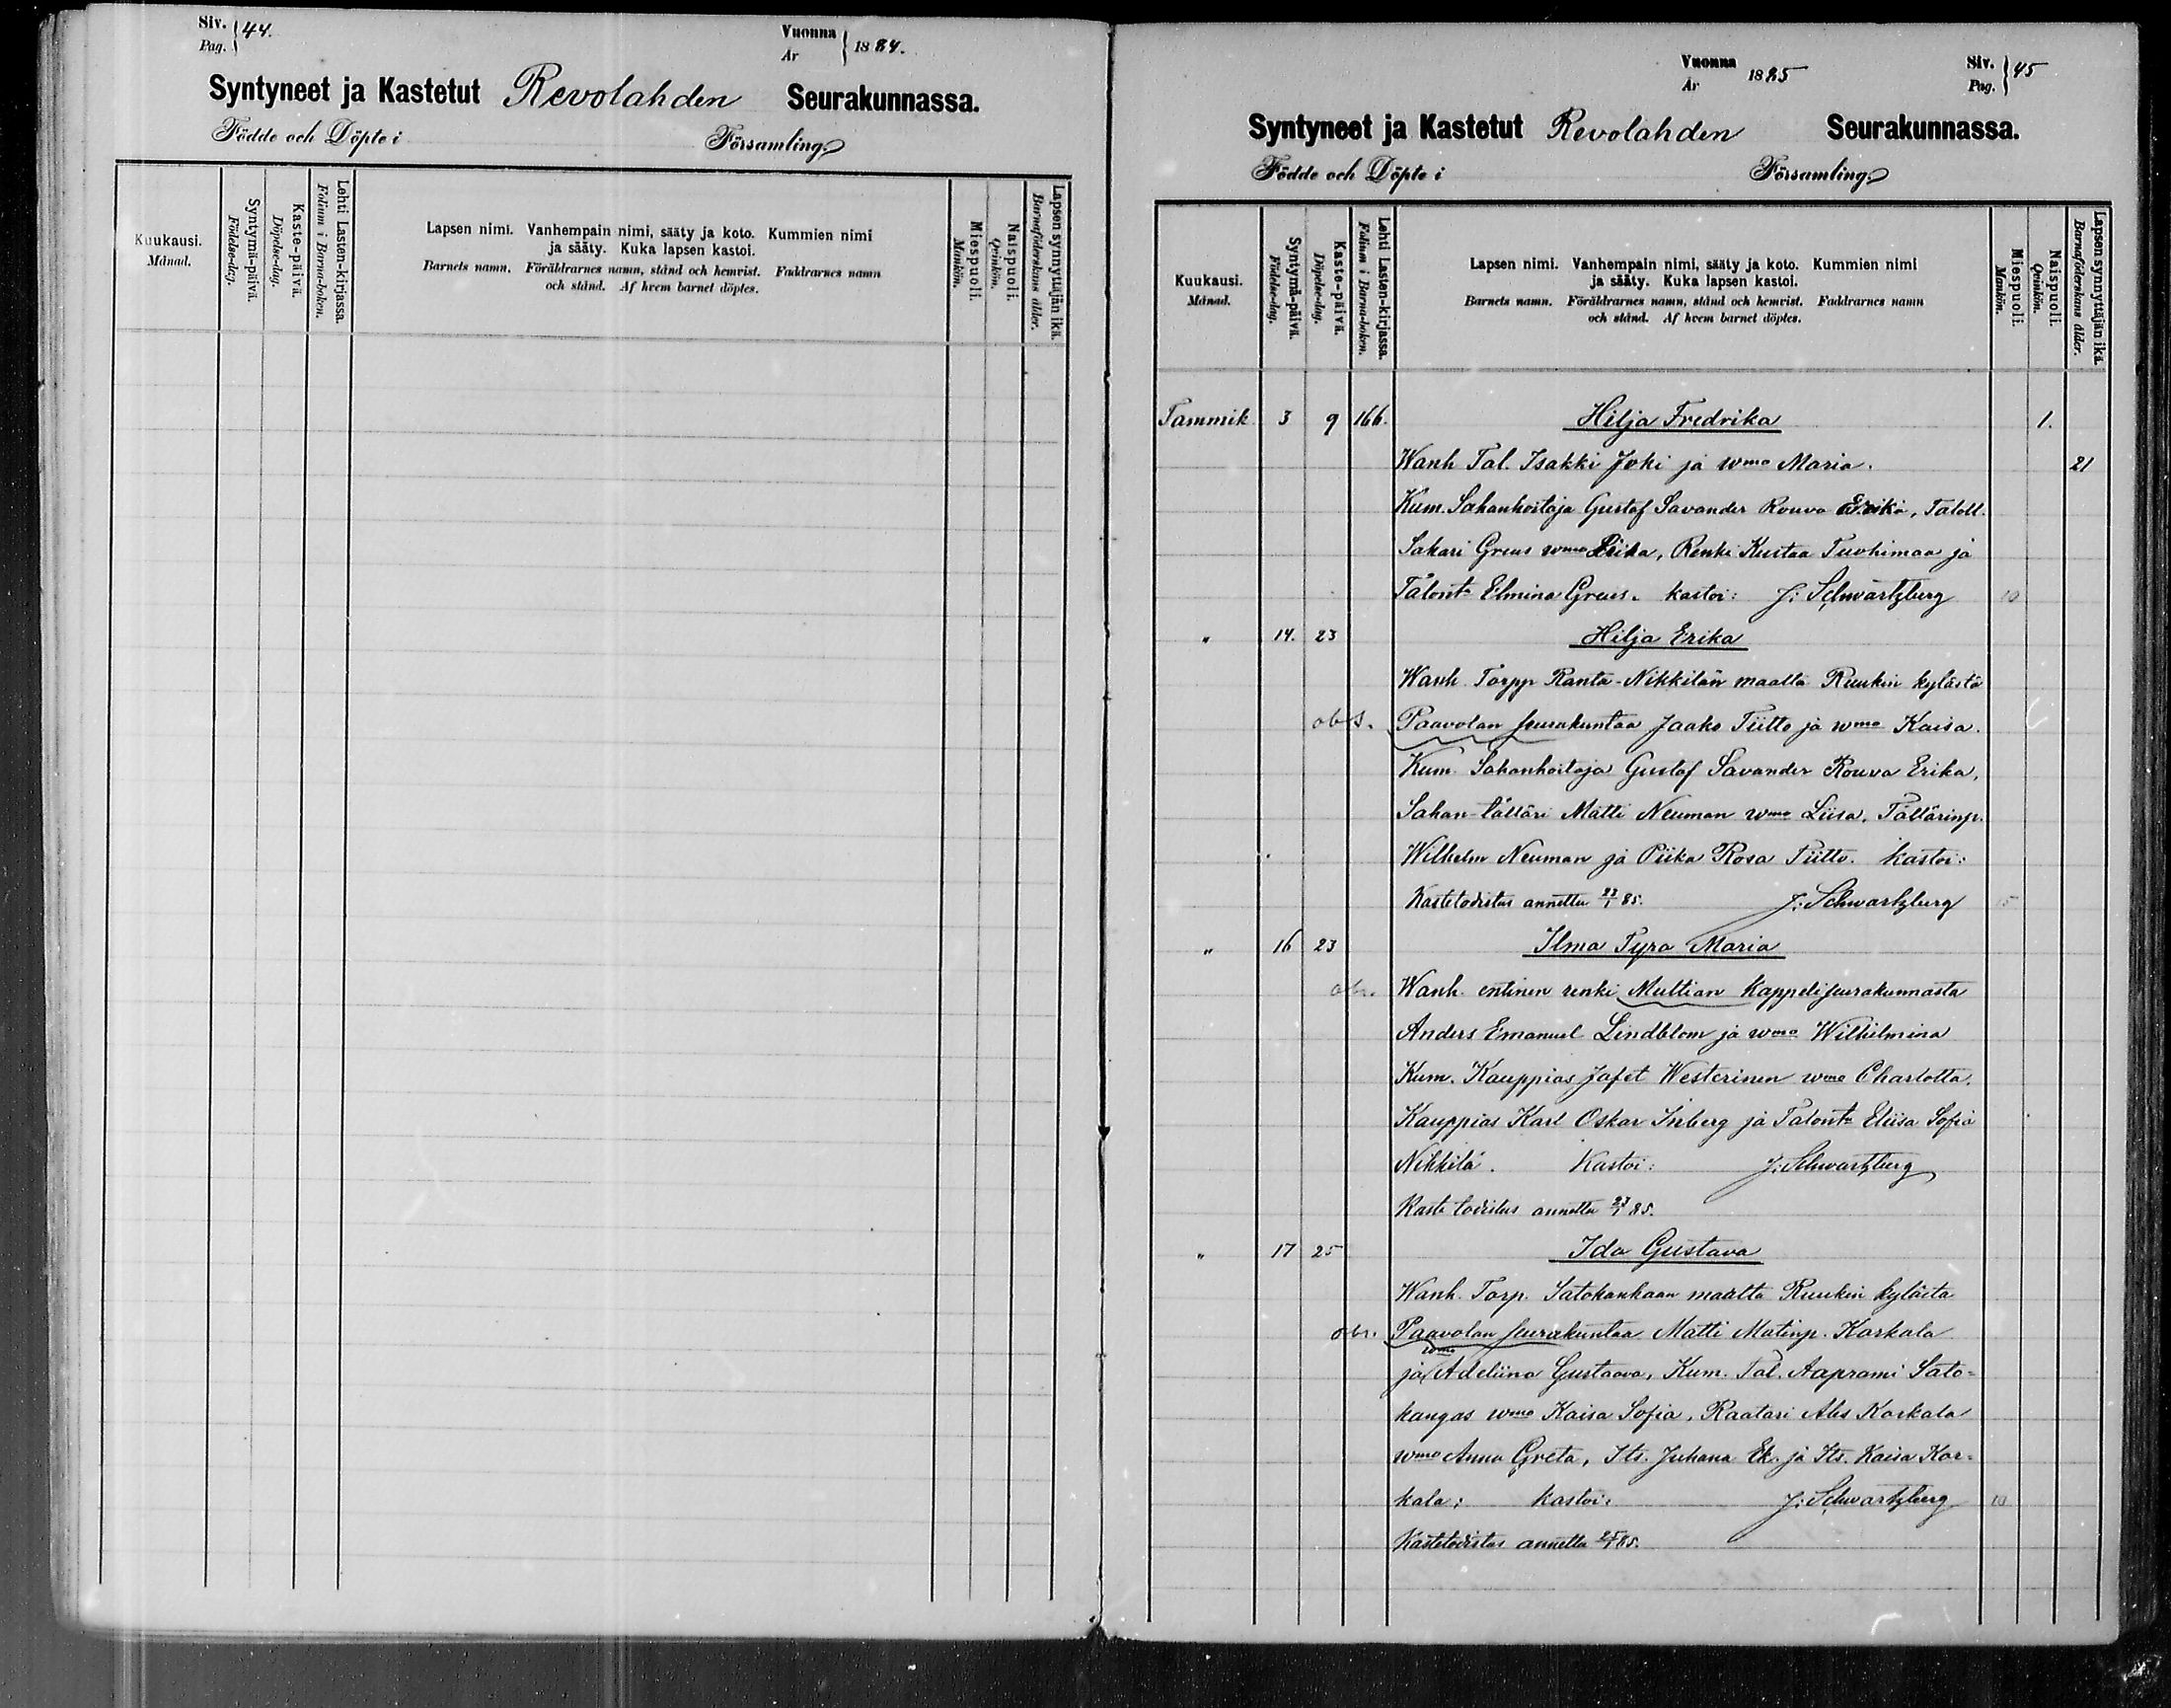 Siv. Pag. } 44.
Vuonna År } 1884.
Syntyneet ja Kastetut Revolahden Seurakunnassa.
Födde och Döpte i Församling.
Kuukausi. Månad.
Syntymä-päivä. Födelse-dag.
Kaste-päivä. Döpelse-dag.
Lehti Lasten-kirjassa. Folium i Barna-boken.
Lapsen nimi. Vanhempain nimi, sääty ja koto. Kummien nimi
ja sääty. Kuka lapsen kastoi.
Barnets namn. Föräldrarnes namn, stånd och hemvist. Faddrarnes namn
och stånd. Af hvem barnet döptes.
Miespuoli. Mankön.
Naispuoli. Qvinkön.
Lapsen synnyttäjän ikä. Barnaföderskans ålder.
Vuonna År 1885
Siv. Pag. } 45
Syntyneet ja Kastetut Revolahden Seurakunnassa.
Födde och Döpte i Församling.
Kuukausi. Månad.
Syntymä-päivä. Födelse-dag.
Kaste-päivä. Döpelse-dag.
Lehti Lasten-kirjassa. Folium i Barna-boken.
Lapsen nimi. Vanhempain nimi, sääty ja koto. Kummien nimi
ja sääty. Kuka lapsen kastoi.
Barnets namn. Föräldrarnes namn, stånd och hemvist. Faddrarnes namn
och stånd. Af hvem barnet döptes.
Miespuoli. Mankön.
Naispuoli. Qvinkön.
Lapsen synnyttäjän ikä. Barnaföderskans ålder.
Tammik 3 9 166. Hilja Fredrika 1.
Wanh Tal. Isakki Joki ja wmo Maria. 21
Kum. Sahanhoitaja Gustaf Savander Rouva Erika, Taloll.
Sakari Greus wmo Liika, Renki Kustaa Tuohimaa ja
Talont. Elmina Greus. kastoi: J: Schwartzberg 10
" 14. 23 Hilja Erika
Wanh Torpp Ranta-Nikkilän maalta Ruukin kylästä
obs. Paavolan seurakuntaa Jaako Tiitto ja wmo Kaisa.
Kum. Sahanhoitaja Gustaf Savander Rouva Erika,
Sahan-tålläri Matti Neuman wmo Liisa, Tållärinp.
Wilhelm Neuman ja Piika Rosa Tiitto. kastoi:
Kastetodistus annettu 23/1 85. J: Schwartzberg 15
" 16 23 Ilma Tyra Maria
obs. Wanh. entinen renki Multian Kappeliseurakunnasta
Anders Emanuel Lindblom ja wmo Wilhelmina
Kum. Kauppias Jafet Westerinen wmo Charlotta.
Kauppias Karl Oskar Inberg ja Talont. Eliisa Sofia
Nikkilä. Kastoi: J: Schwartzberg
Kaste todistus annettu 23/1 85.
" 17 25 Ida Gustava
Wanh. Torp. Satokankaan maalta Ruukin kylästä
obs. Paavolan seurakuntaa Matti Matinp. Karkala
ja wmo Adeliina Gustaava, Kum. Tal. Aaprami Sato=
kangas wmo Kaisa Sofia, Raatari Abs Karkala
wmo Anna Greta, Its. Juhana Ek. ja Its. Kaisa Kar=
kala; kastoi: J: Schwartzberg 10
Kastetodistus annettu 25/1 85.